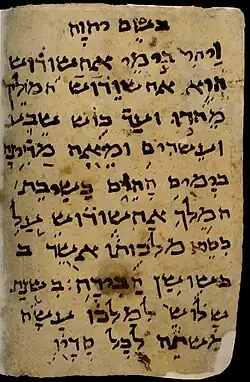 בשם יהוה
ויהי בימי אחשורוש
הוא אחשורוש המלך
מהדו ועד כוש שבע
ועשרים ומאה מדינה
בימים ההים כשיבת
המלך אחשורוש על
כסא מלכותו אשר ב
בשושן הבירה בשנת
שלוש למלכו עשה
משתה לכל